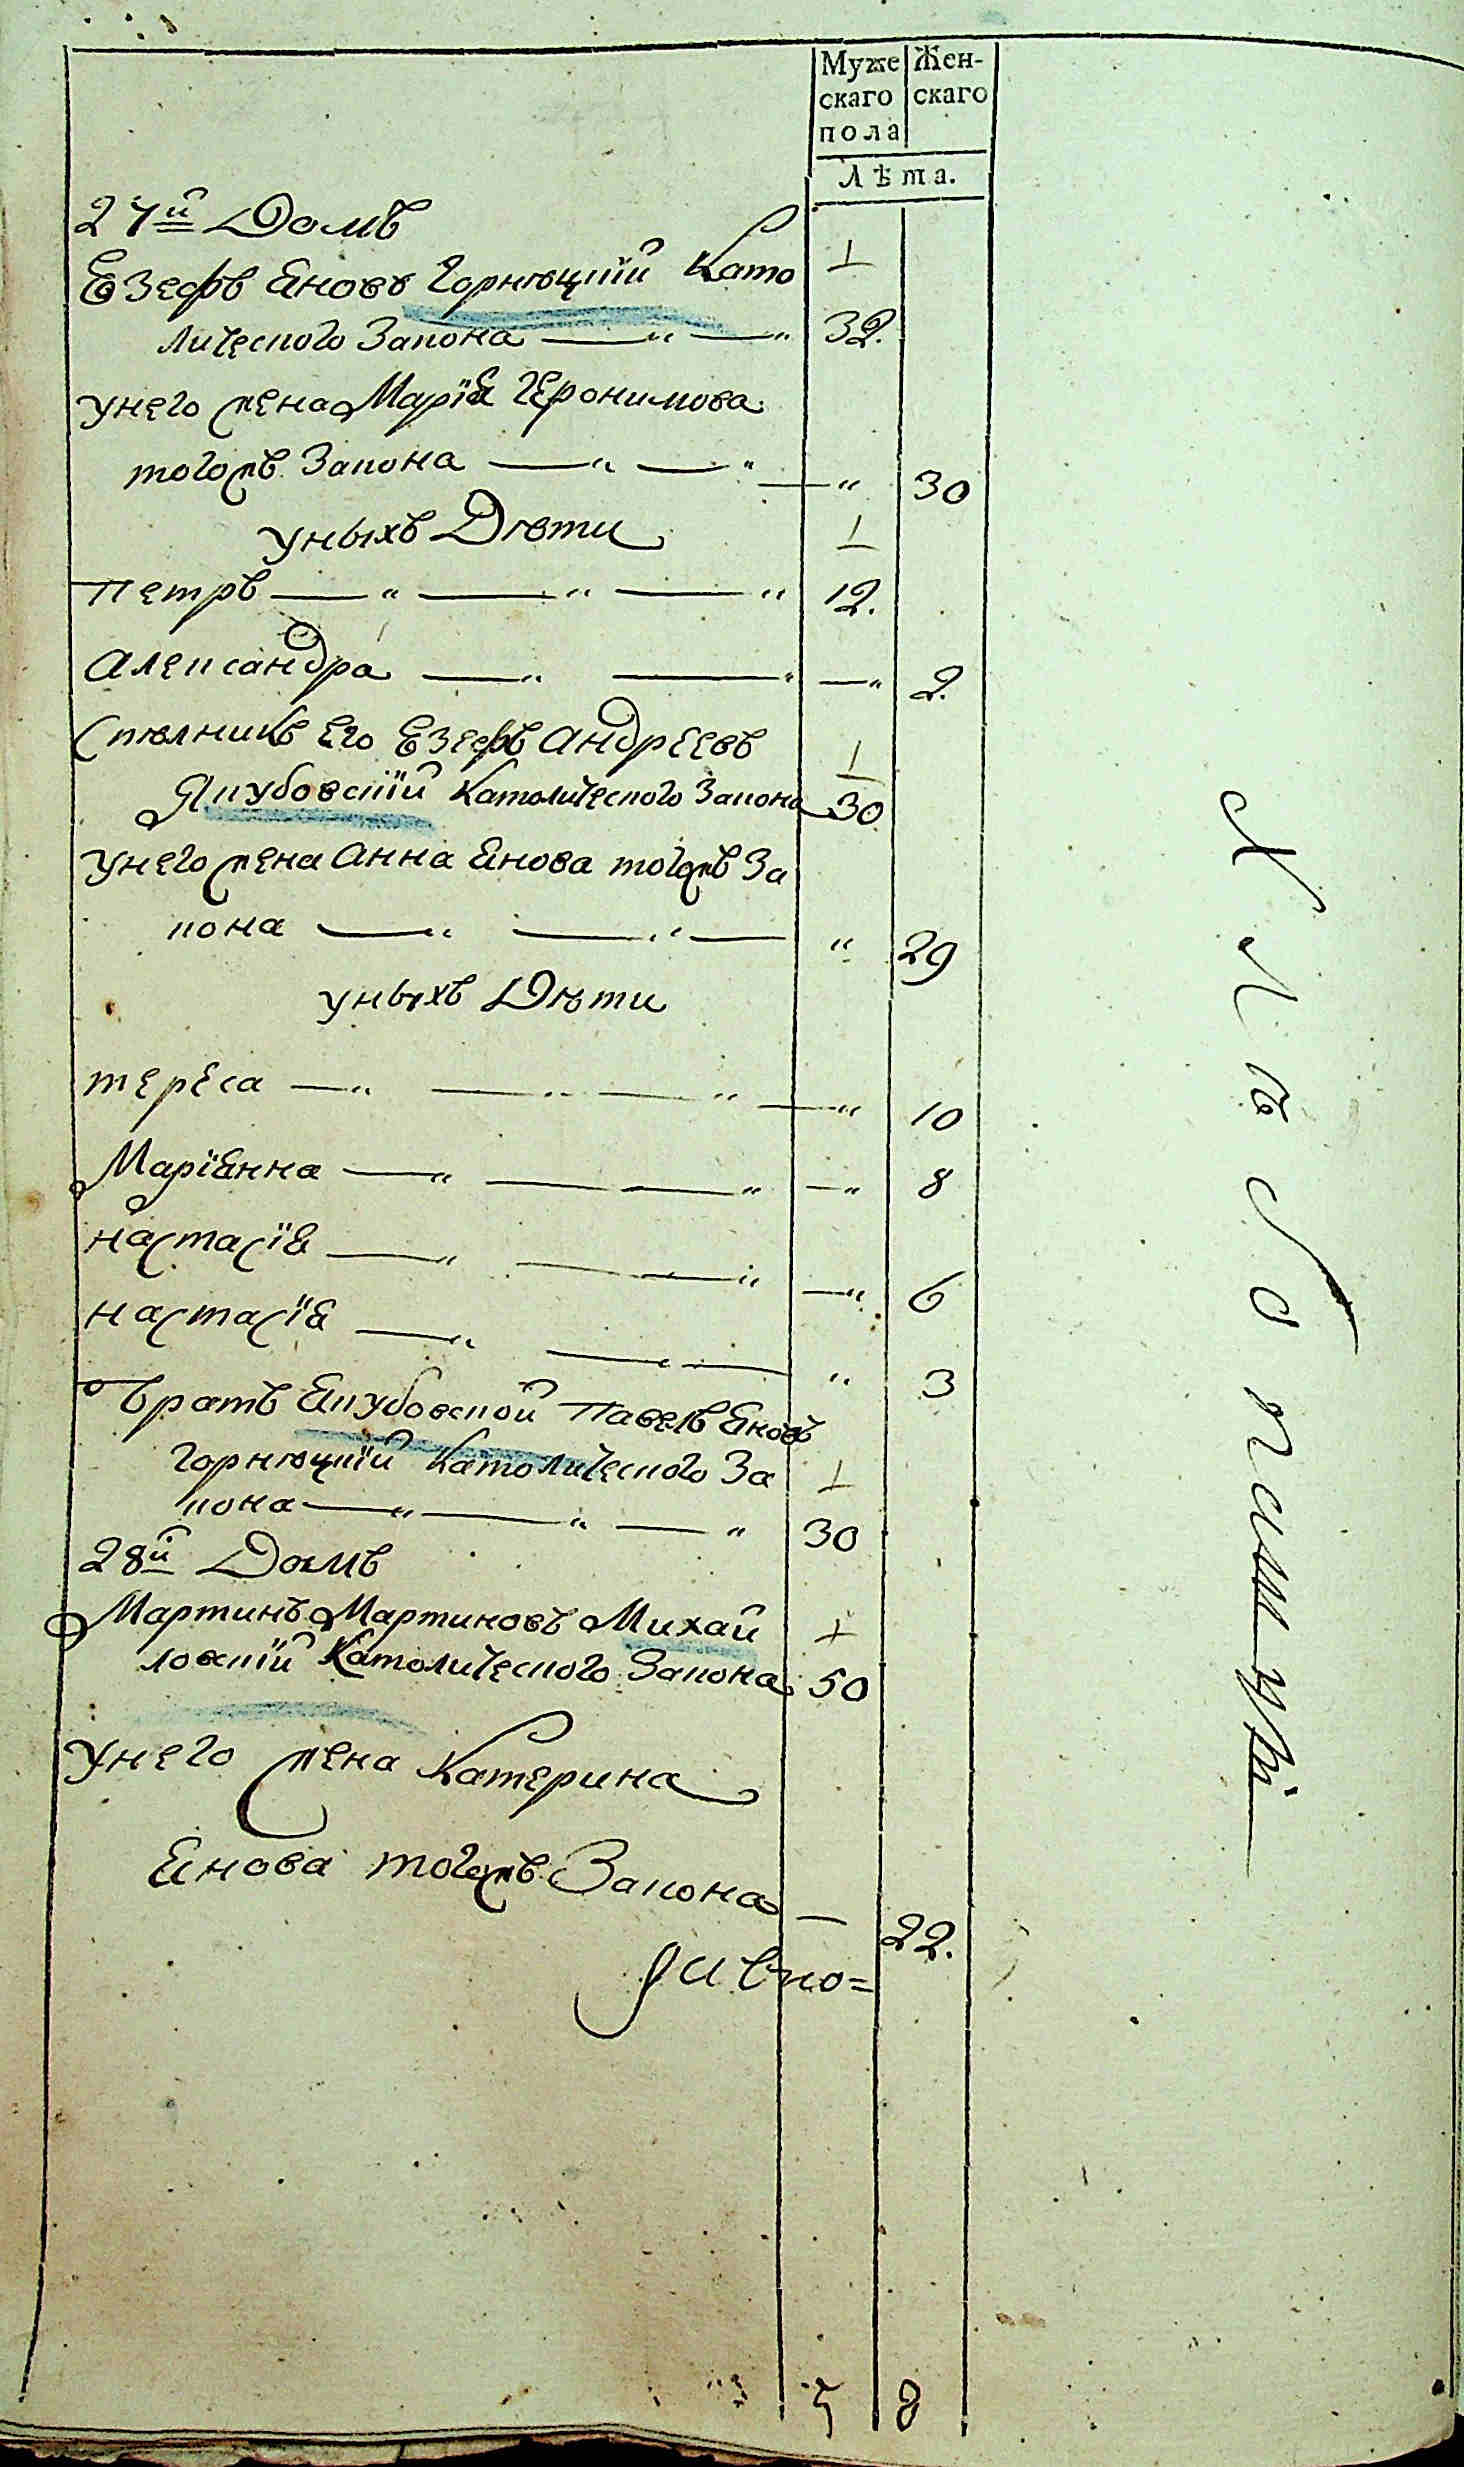 Муже Жен-
скаго скаго
пола
Лѣта.
27й Домъ
Езефъ Яновъ Горнѣцкій Като
лического Закона 32.
унего жена Марія Геронимова
тогожъ Закона 30
уныхъ Дѣти
Петръ 12.
Александра 2.
Спѣлникъ его Езефъ Андреевъ
Якубовскій Католического Закона 30
унего жена Анна Янова тогожъ За
кона 29
уныхъ Дѣти
Тереса 10
Маріянна 8
Настасія 6
Настасія 3
Братъ Якубовской Павелъ Яновъ
Горнѣцкій Католического За
кона 30
28й Домъ
Мартинъ Мартиновъ Михай
ловскій Католического Закона 50
унего жена Катерина
Янова тогожъ Закона 22.
5 8